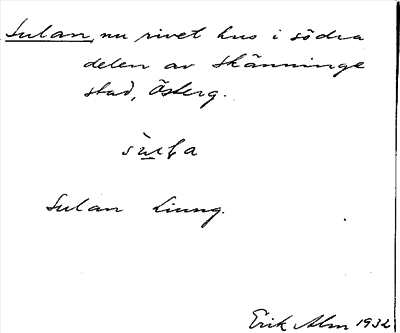 Sulan, nu rivet hus i södra
delen av Skänninge
stad, Österg.
Sulan Ljung.
Erik Alm 1932